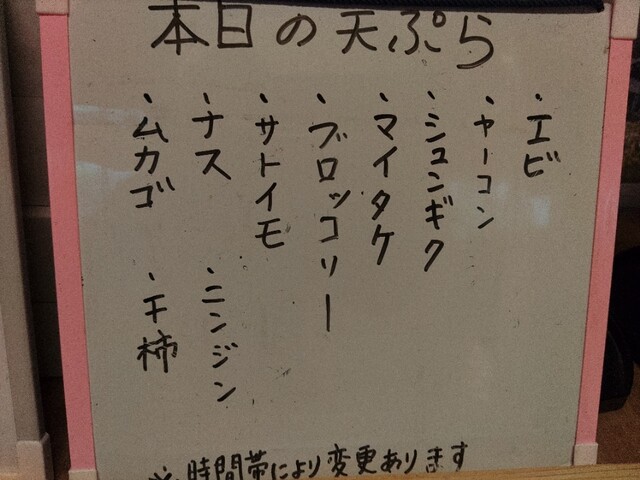 本日の天ぷら
・エビ
・ヤーコン
・シュンギク
・マイタケ
・ブロッコリー
・サトイモ
・ナス
・ニンジン
・ムカゴ
・干柿
※時間帯により変更あります